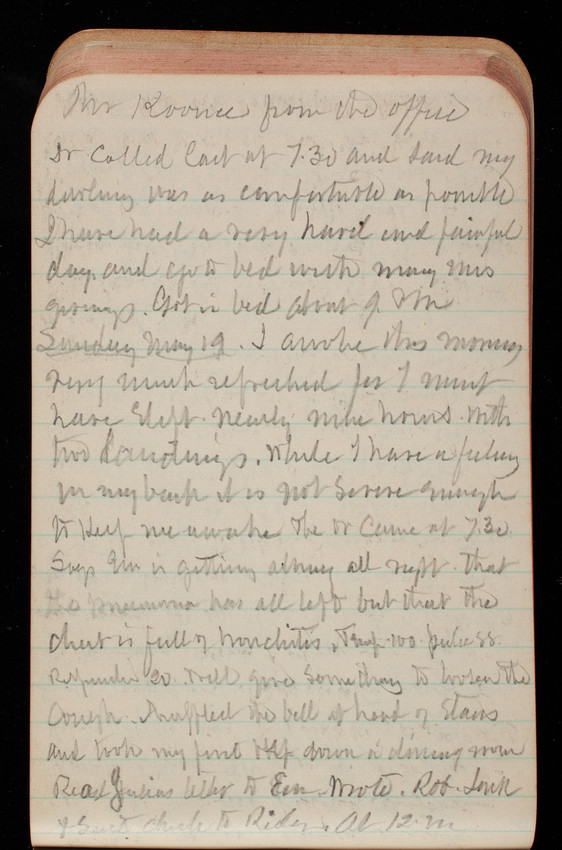 Mr Koonce from the office
Dr Called last at 7.30 and said my
darling was as comfortable as possible
I have had a very hard and painful
day. and go to bed with many mis
givings. Got in bed about 9.
Sunday May 19. I awoke this morning
very much refreshed for I must
have slept nearly nine hours with
two. While I have a feeling
in my back it is not severe enough
to keep me awake The Dr Came at 7.30
Says Em is getting along all right. that
the pneumonia has all left but that the
chest is full of bronchitis, Temp. 100 pulse 88.
Respiration 20. Will give something to loosen the
Cough. Muffled the bell at head of Stairs
and took my first down in dining room
Read Julias letter to Em. Wrote. Rob.
& Sent check to Rider. At 12. m